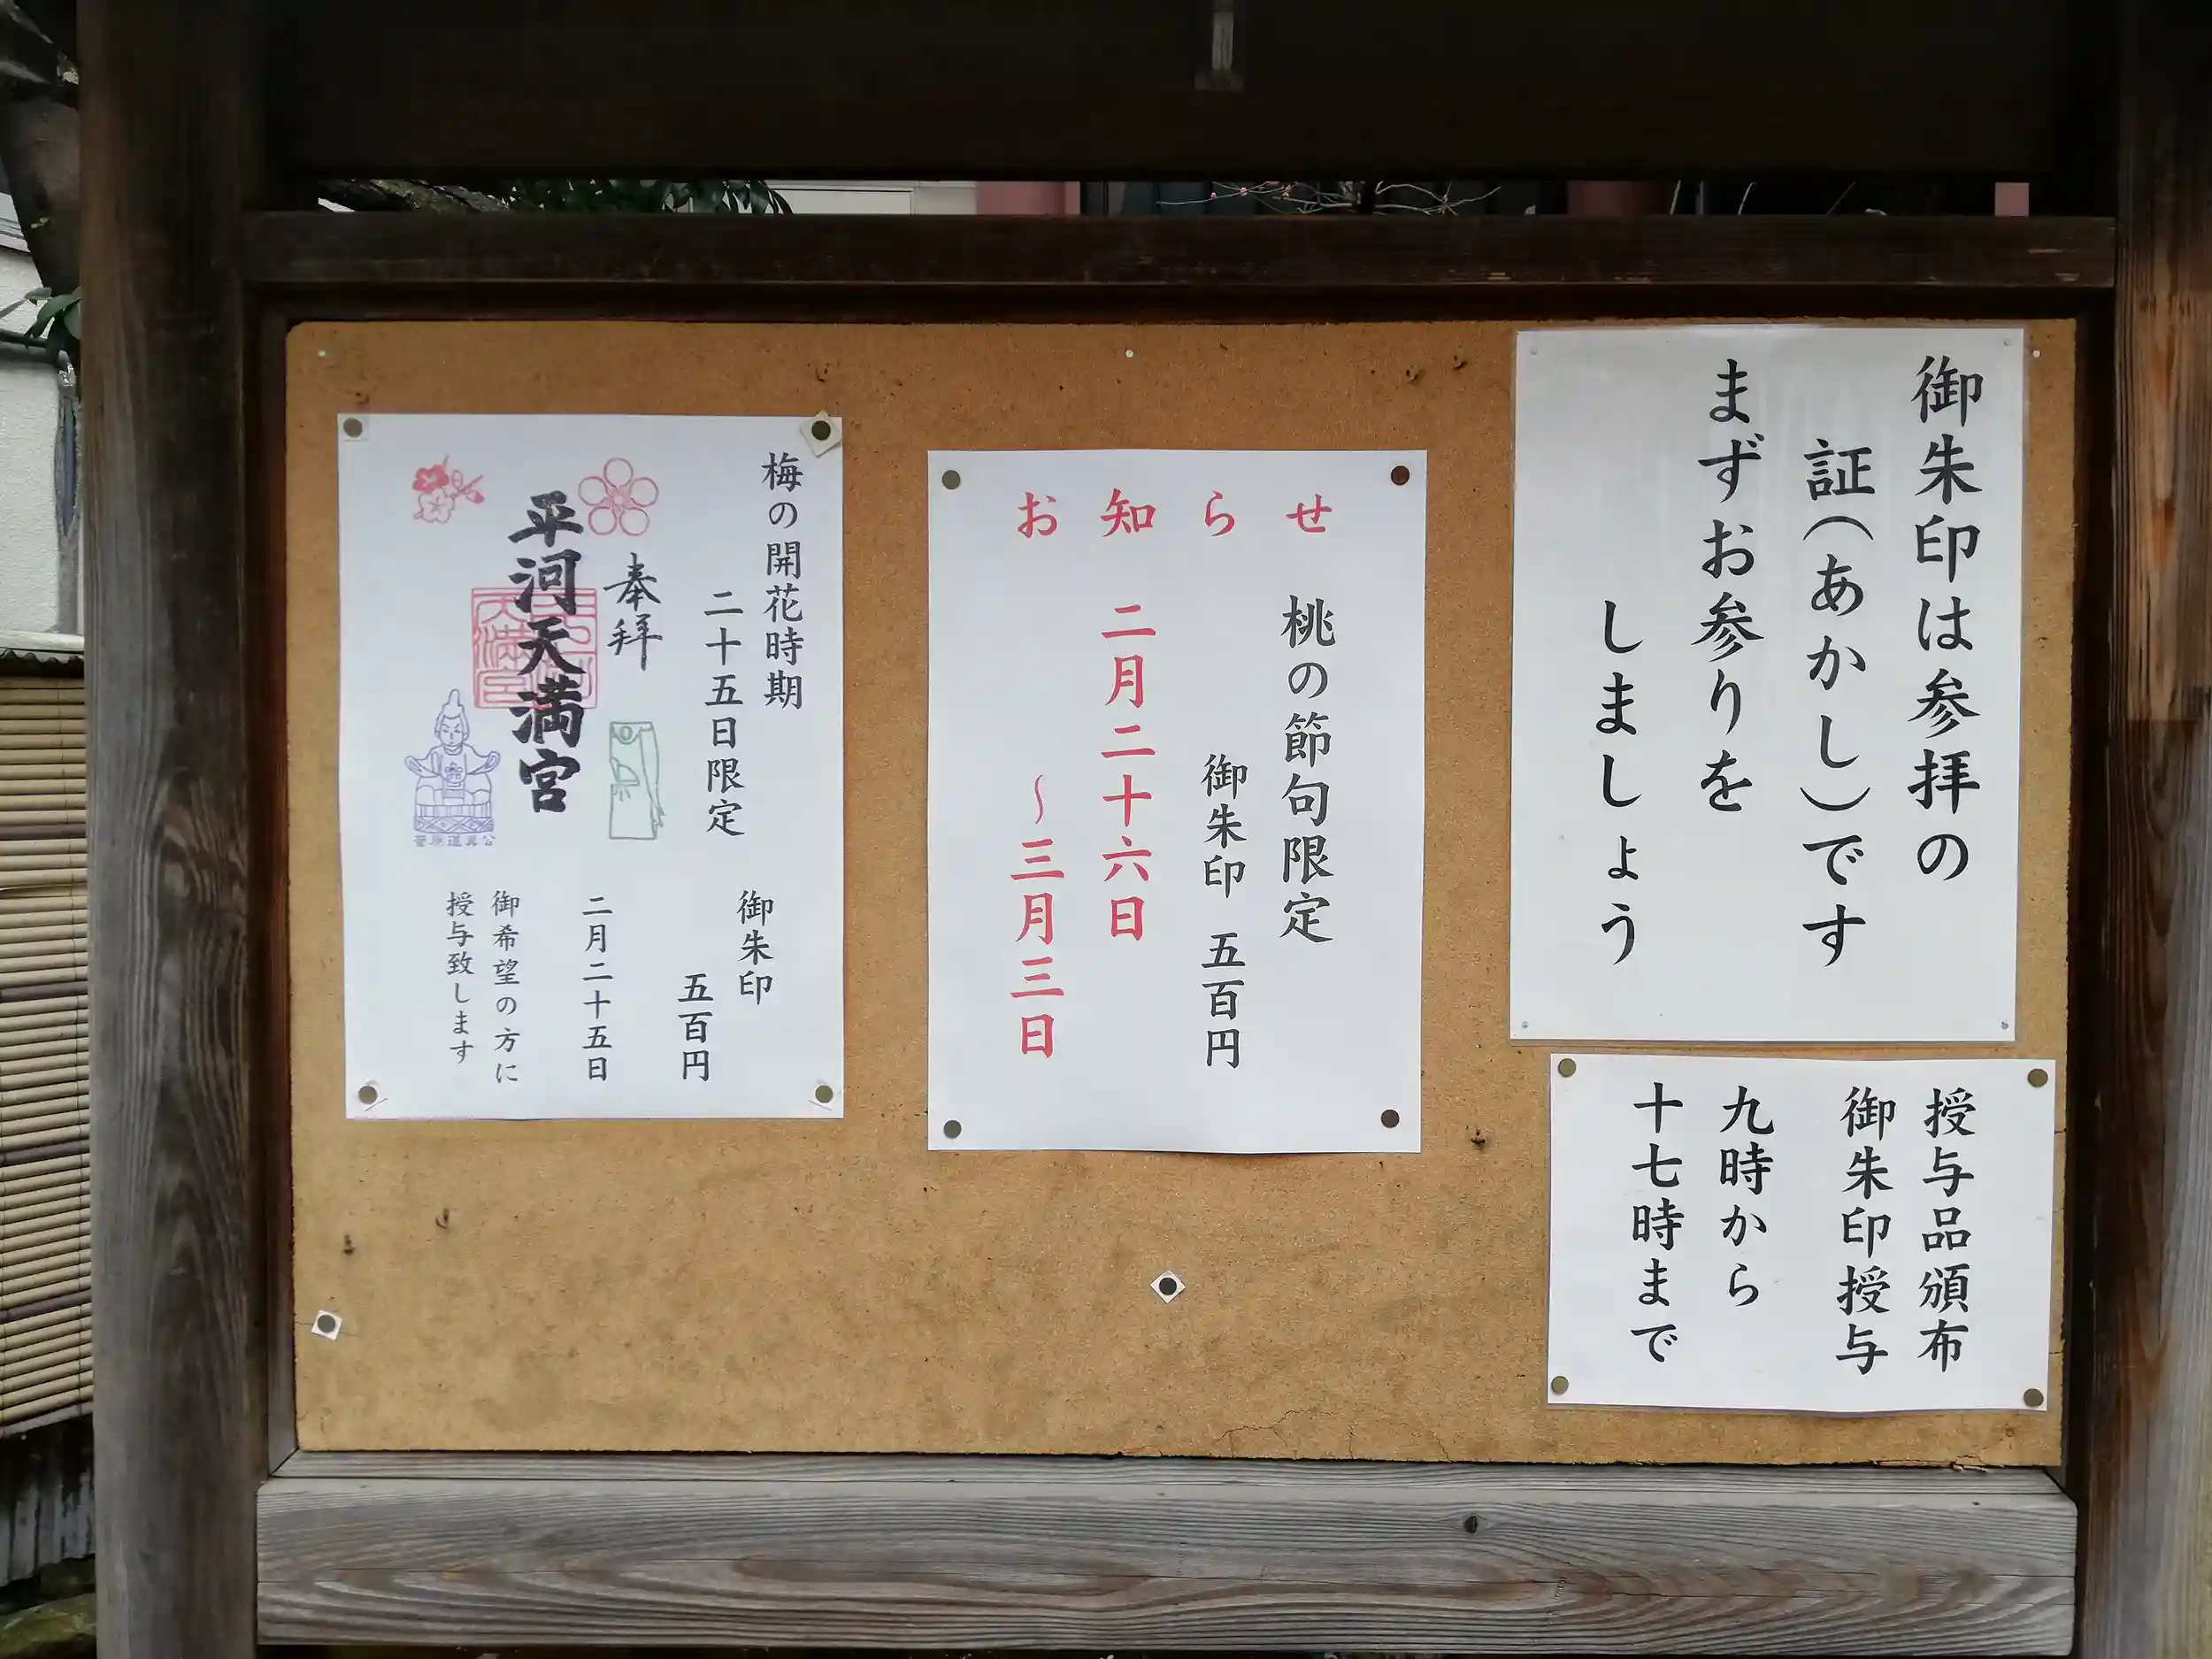 御朱印は参拝の
証(あかし)です
まずお参りを
しましょう
授与品頒布
御朱印授与
九時から
十七時まで
お知らせ
桃の節句限定
御朱印 五百円
二月二十六日
〜三月三日
梅の開花時期
二十五日限定
奉拝
平河天満宮
菅原道真公
御朱印
五百円
二月二十五日
御希望の方に
授与致します